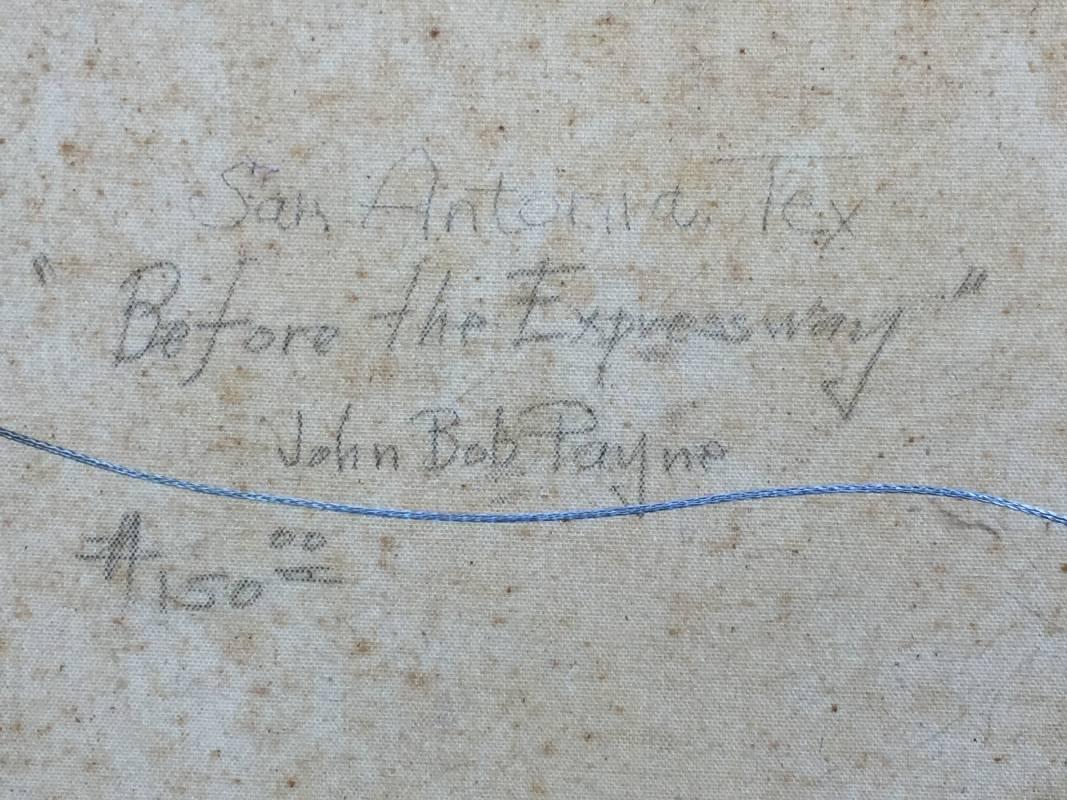 San Antonio Tex
"Before the Expressway"
John Bob Payne
$150 00